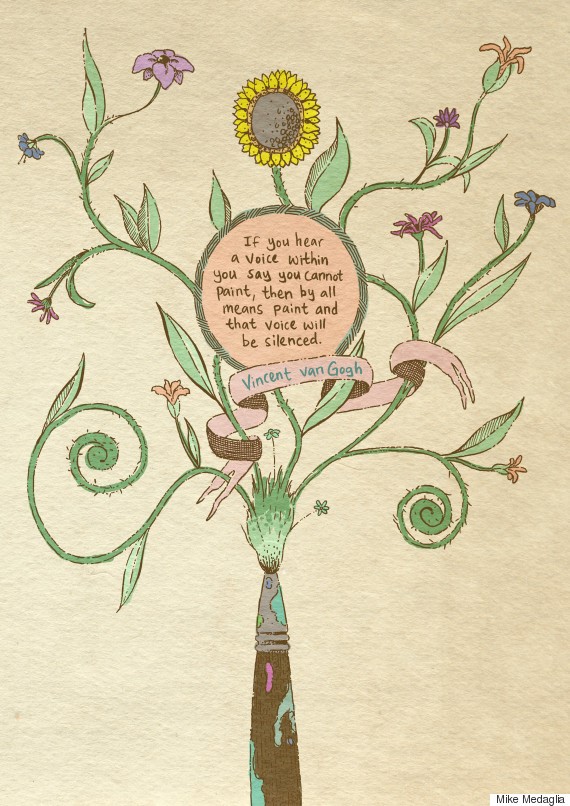 If you hear
a voice within
you say you cannot
paint, then by all
means paint and
that voice will
be silenced.
Vincent van Gogh
Mike Medaglia